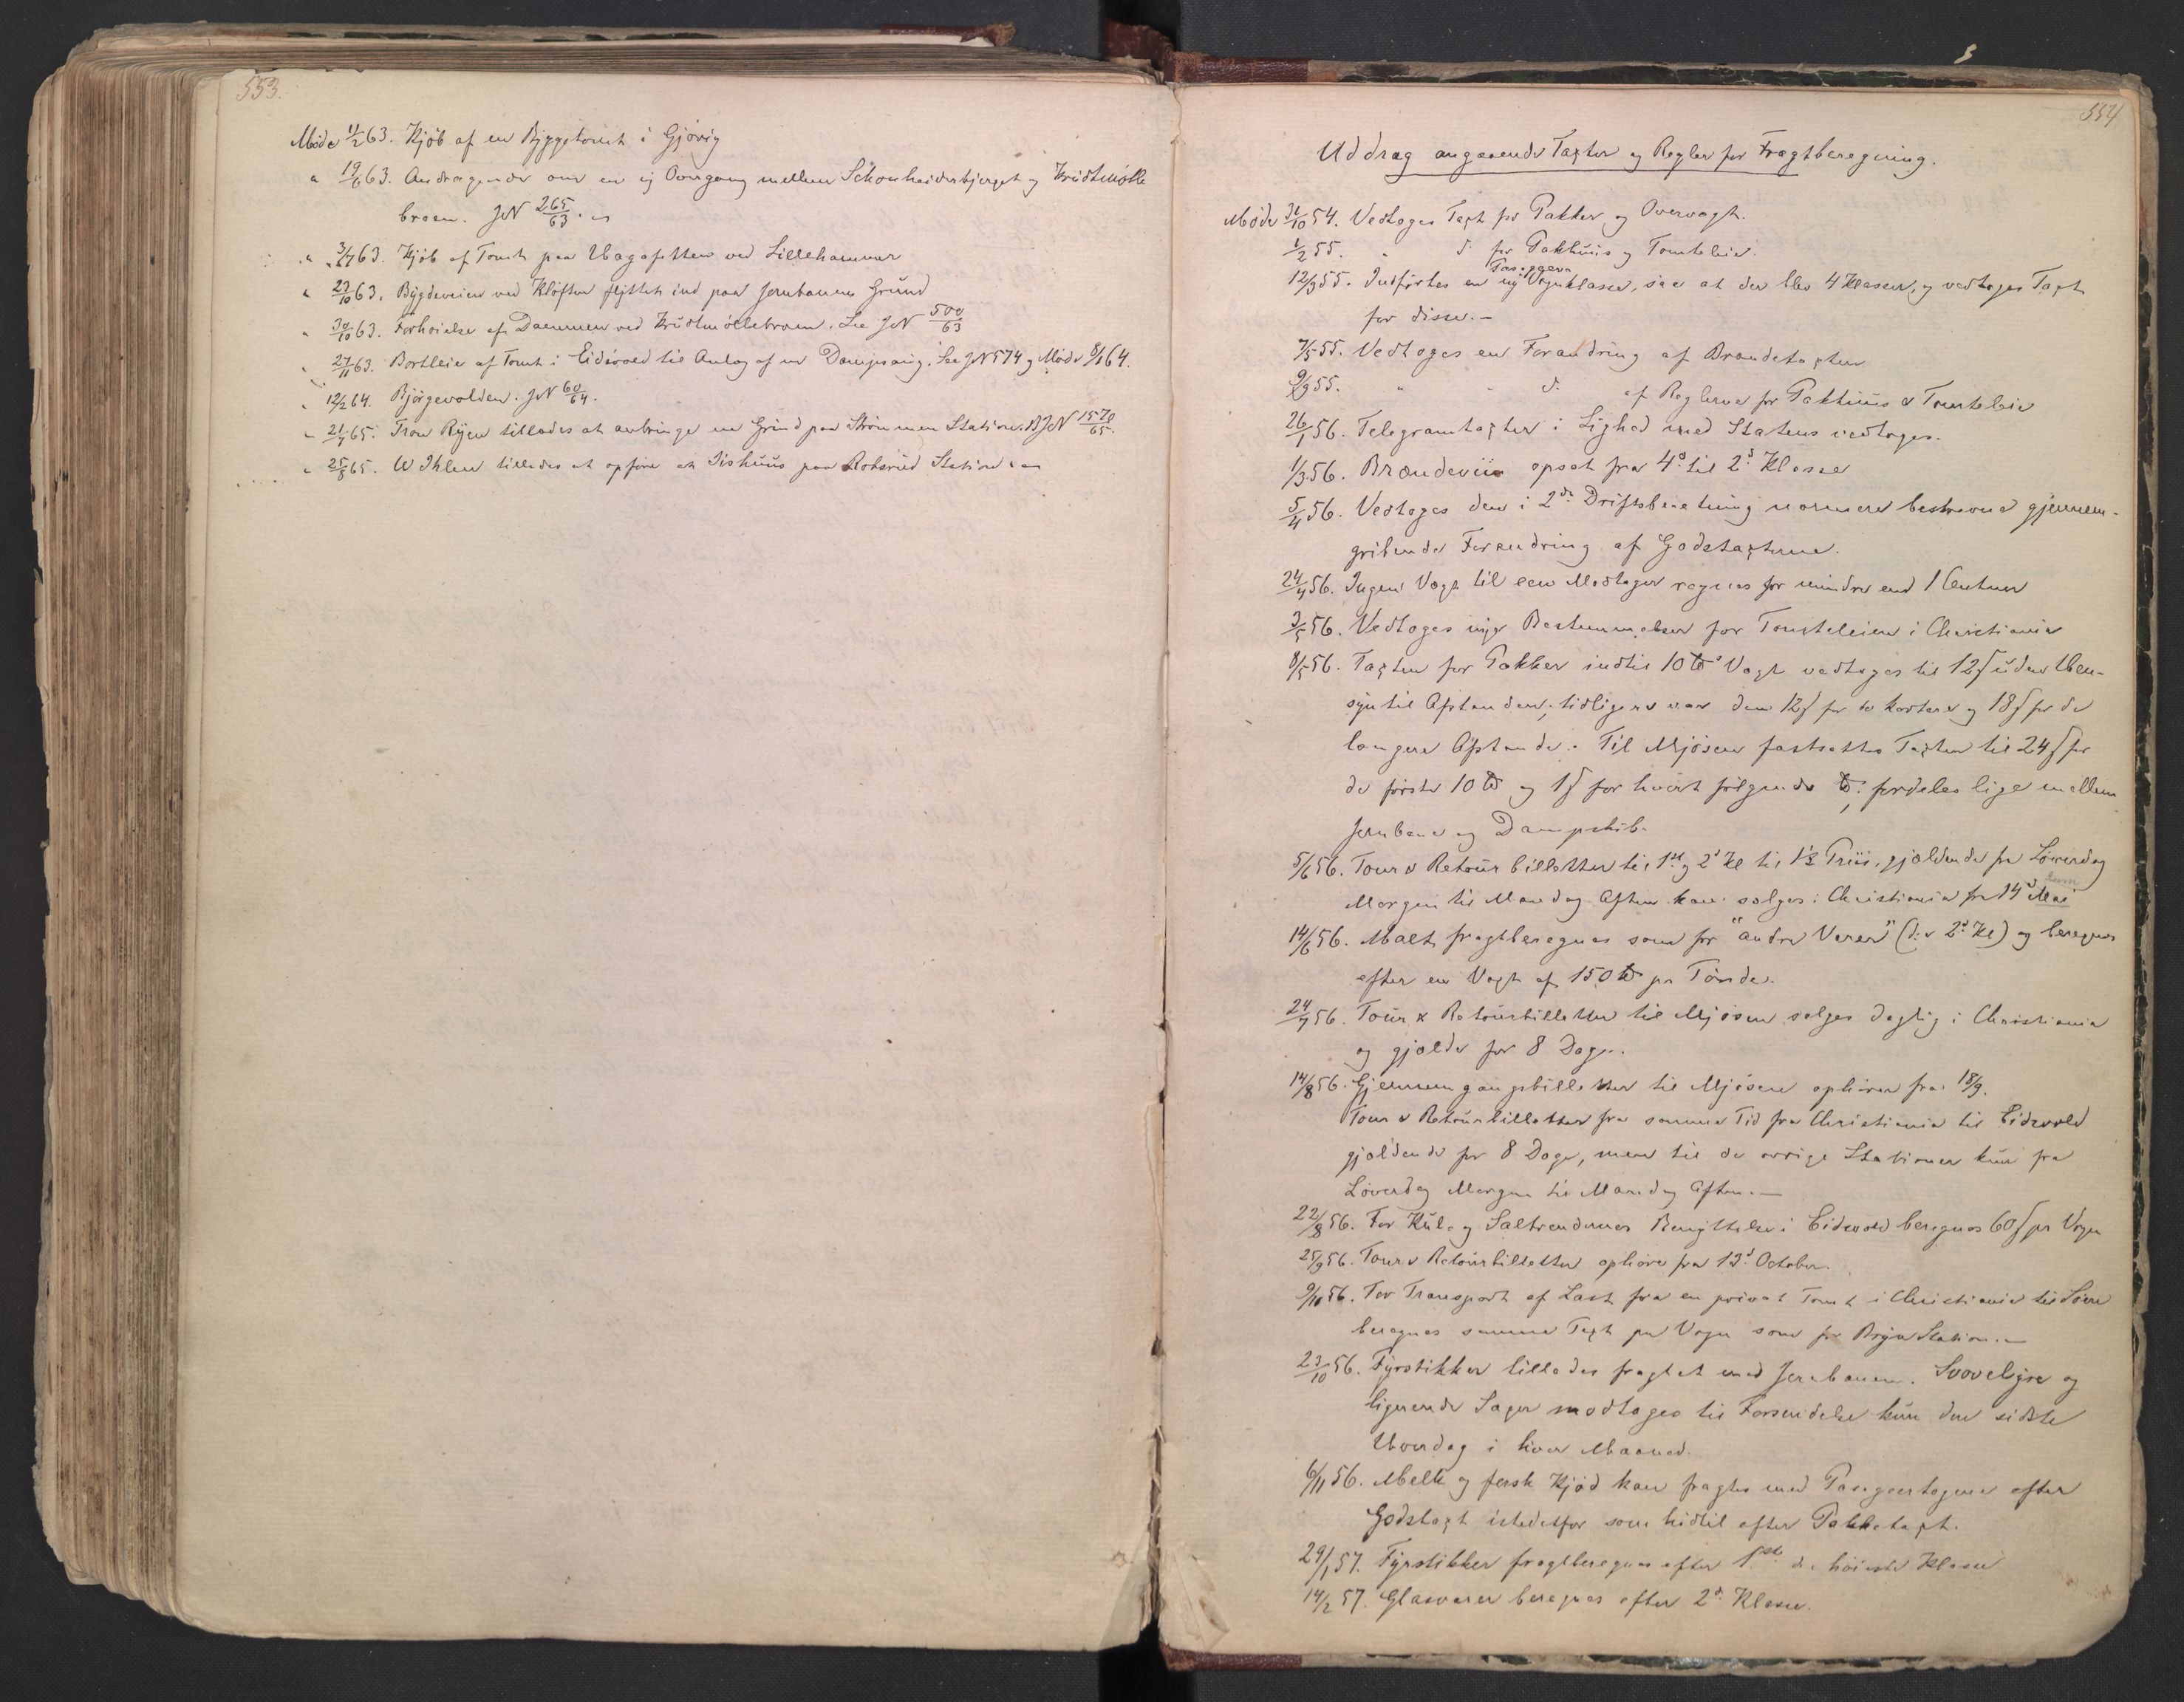 553.
Møde 11/2 63. Kjöb af en Byggetomt i Gjövig
" 19/6 63. Andragende om en ny Overgang mellem Schouheiderbjerget og Krudtmölle
broen. JN 265/63.
" 3/7 63. Kjöb af Tomt paa ved Lillehammer
" 23/10 63. Bygdeveien ved Klöften flyttet ind paa Jernbanens Grund
" 30/10 63. Forhöielse af Dammen ved Krudtmöllebroen. See JN 500/63
" 27/11 63. Bortleie af Tomt i Eidsvold til Anlæg af en Dampsaug. See JN 574 og Møde 8/1 64.
" 12/2 64. Bjørgevolden. JN 60/64.
" 21/7 65. Tron Ryen tillades at anbringe en Grind paa Strömmen Station. BJN 1570/65.
" 25/8 65. W Ihlen tillades at opføre et Iishuus paa Robsrud Station
554
Uddrag angaaende Taxter og Regler for Fragtberegning.
Møde 31/10 54. Vedtoges Taxt for Pakker og Overvægt.
1/2 55. " d: for Pakhuus og Tomteleie.
Passager
12/3 55. Indførtes en ny Vognklasse, saa at der blev 4 Klasser, og vedtoges Taxt
for disse. –
7/5 55. Vedtoges en Forandring af Brændetaxten
9/9 55. " " d: af Reglerne for Pakhuus & Tomteleie
26/1 56. Telegramtaxter i Lighed med Statens vedtoges.
1/3 56. Brændeviin opsat fra 4de til 2d Klasse
5/4 56. Vedtoges den i 2den Driftsberetning nærmere beskrevne gjennem-
gribende Forandring af Godstaxterne.
24/4 56. Ingen Vægt til een Modtager regnes for mindre end 1 Centner
3/5 56. Vedtoges nye Bestemmelser for Tomteleien i Christiania
8/5 56. Taxten for Pakker indtil 10 ℔s Vægt vedtoges til 12 ß uden Hen-
syn til Afstanden; tidligere var den 12 ß for de kortere og 18 ß for de
længere Afstande. Til Mjösen fastsattes Taxten til 24 ß for
de første 10 ℔ og 1 ß for hvert følgende ℔; fordeles lige mellem
Jernbane og Dampskib.
5/6 56. Tour & Retour billetter til 1st og 2d Kl til 1½ Priis, gjældende fra Löverdag
Morgen til Mandag Aften kan sælges i Christiania fra 14d Mai
14/6 56. Malt fragtberegnes som for "andre Varer" (d: v 2d Kl) og beregnes
efter en Vægt af 150 ℔ pr Tønde.
24/7 56. Tour & Retourbilletter til Mjösen sælges daglig i Christiania
og gjælde for 8 Dage.
14/8 56. Gjennemgangsbilletter til Mjösen ophører fra 18/9.
Tour & Retourbilletter fra samme Tid fra Christiania til Eidsvold
gjældende for 8 Dage, men til de øvrige Stationer kun fra
Löverdag Morgen til Mandag Aften. –
22/8 56. For Kul og Saltrendernes Benyttelse i Eidsvold beregnes 60 ß pr Vogn
25/9 56. Tour & Retourbilletter ophøre fra 13d October.
9/10 56. For Transport af Last fra en privat Tomt i Christiania til Söen
beregnes samme Taxt pr Vogn som for Bryn Station. –
23/10 56. Fyrstikker tillades fragtet med Jernbanen. Svovelsyre og
lignende Sager modtages til Forsendelse kun den sidste
Hverdag i hver Maaned.
6/11 56. Melk og fersk Kjød kan fragtes med Passagertogene efter
Godstaxt istedetfor som hidtil efter Pakketaxt.
29/1 57. Fyrstikker fragtberegnes efter 1ste d: høieste Klasse
14/2 57. Glasvarer beregnes efter 2d Klasse.